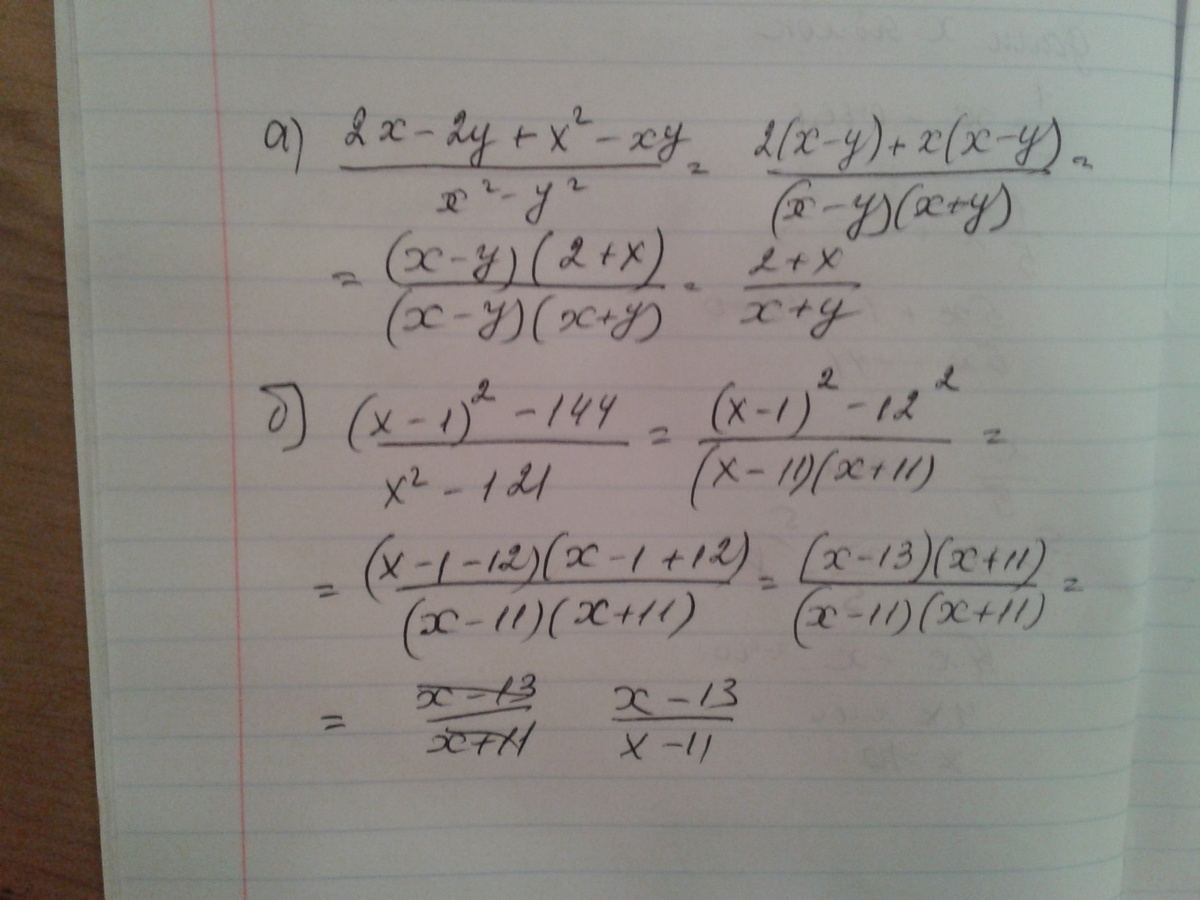 а) (2x - 2y + x² - xy)/(x² - y²) = (2(x-y) + x(x-y))/((x-y)(x+y)) =
= ((x-y)(2+x))/((x-y)(x+y)) = (2+x)/(x+y)
б) ((x-1)² - 144)/(x² - 121) = ((x-1)² - 12²)/((x-11)(x+11)) =
= ((x-1-12)(x-1+12))/((x-11)(x+11)) = ((x-13)(x+11))/((x-11)(x+11)) =
= (x-13)/(x+11) (x-13)/(x-11)